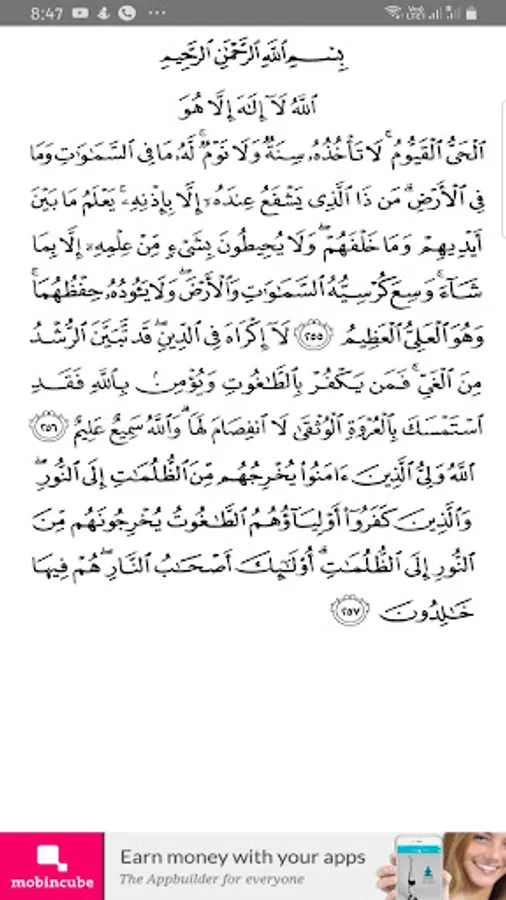 8:47
بِسْمِ ٱللَّهِ ٱلرَّحْمَٰنِ ٱلرَّحِيمِ
ٱللَّهُ لَآ إِلَٰهَ إِلَّا هُوَ
ٱلْحَىُّ ٱلْقَيُّومُ ۚ لَا تَأْخُذُهُۥ سِنَةٌ وَلَا نَوْمٌ ۚ لَّهُۥ مَا فِى ٱلسَّمَٰوَٰتِ وَمَا
فِى ٱلْأَرْضِ ۗ مَن ذَا ٱلَّذِى يَشْفَعُ عِندَهُۥٓ إِلَّا بِإِذْنِهِۦ ۚ يَعْلَمُ مَا بَيْنَ
أَيْدِيهِمْ وَمَا خَلْفَهُمْ ۖ وَلَا يُحِيطُونَ بِشَىْءٍ مِّنْ عِلْمِهِۦٓ إِلَّا بِمَا
شَآءَ ۚ وَسِعَ كُرْسِيُّهُ ٱلسَّمَٰوَٰتِ وَٱلْأَرْضَ ۖ وَلَا يَـُٔودُهُۥ حِفْظُهُمَا ۚ
وَهُوَ ٱلْعَلِىُّ ٱلْعَظِيمُ ٢٥٥ لَآ إِكْرَاهَ فِى ٱلدِّينِ ۖ قَد تَّبَيَّنَ ٱلرُّشْدُ
مِنَ ٱلْغَىِّ ۚ فَمَن يَكْفُرْ بِٱلطَّٰغُوتِ وَيُؤْمِنۢ بِٱللَّهِ فَقَدِ
ٱسْتَمْسَكَ بِٱلْعُرْوَةِ ٱلْوُثْقَىٰ لَا ٱنفِصَامَ لَهَا ۗ وَٱللَّهُ سَمِيعٌ عَلِيمٌ ٢٥٦
ٱللَّهُ وَلِىُّ ٱلَّذِينَ ءَامَنُوا۟ يُخْرِجُهُم مِّنَ ٱلظُّلُمَٰتِ إِلَى ٱلنُّورِ ۖ
وَٱلَّذِينَ كَفَرُوٓا۟ أَوْلِيَآؤُهُمُ ٱلطَّٰغُوتُ يُخْرِجُونَهُم مِّنَ
ٱلنُّورِ إِلَى ٱلظُّلُمَٰتِ ۗ أُو۟لَٰٓئِكَ أَصْحَٰبُ ٱلنَّارِ ۖ هُمْ فِيهَا
خَٰلِدُونَ ٢٥٧
mobincube
Earn money with your apps
The Appbuilder for everyone